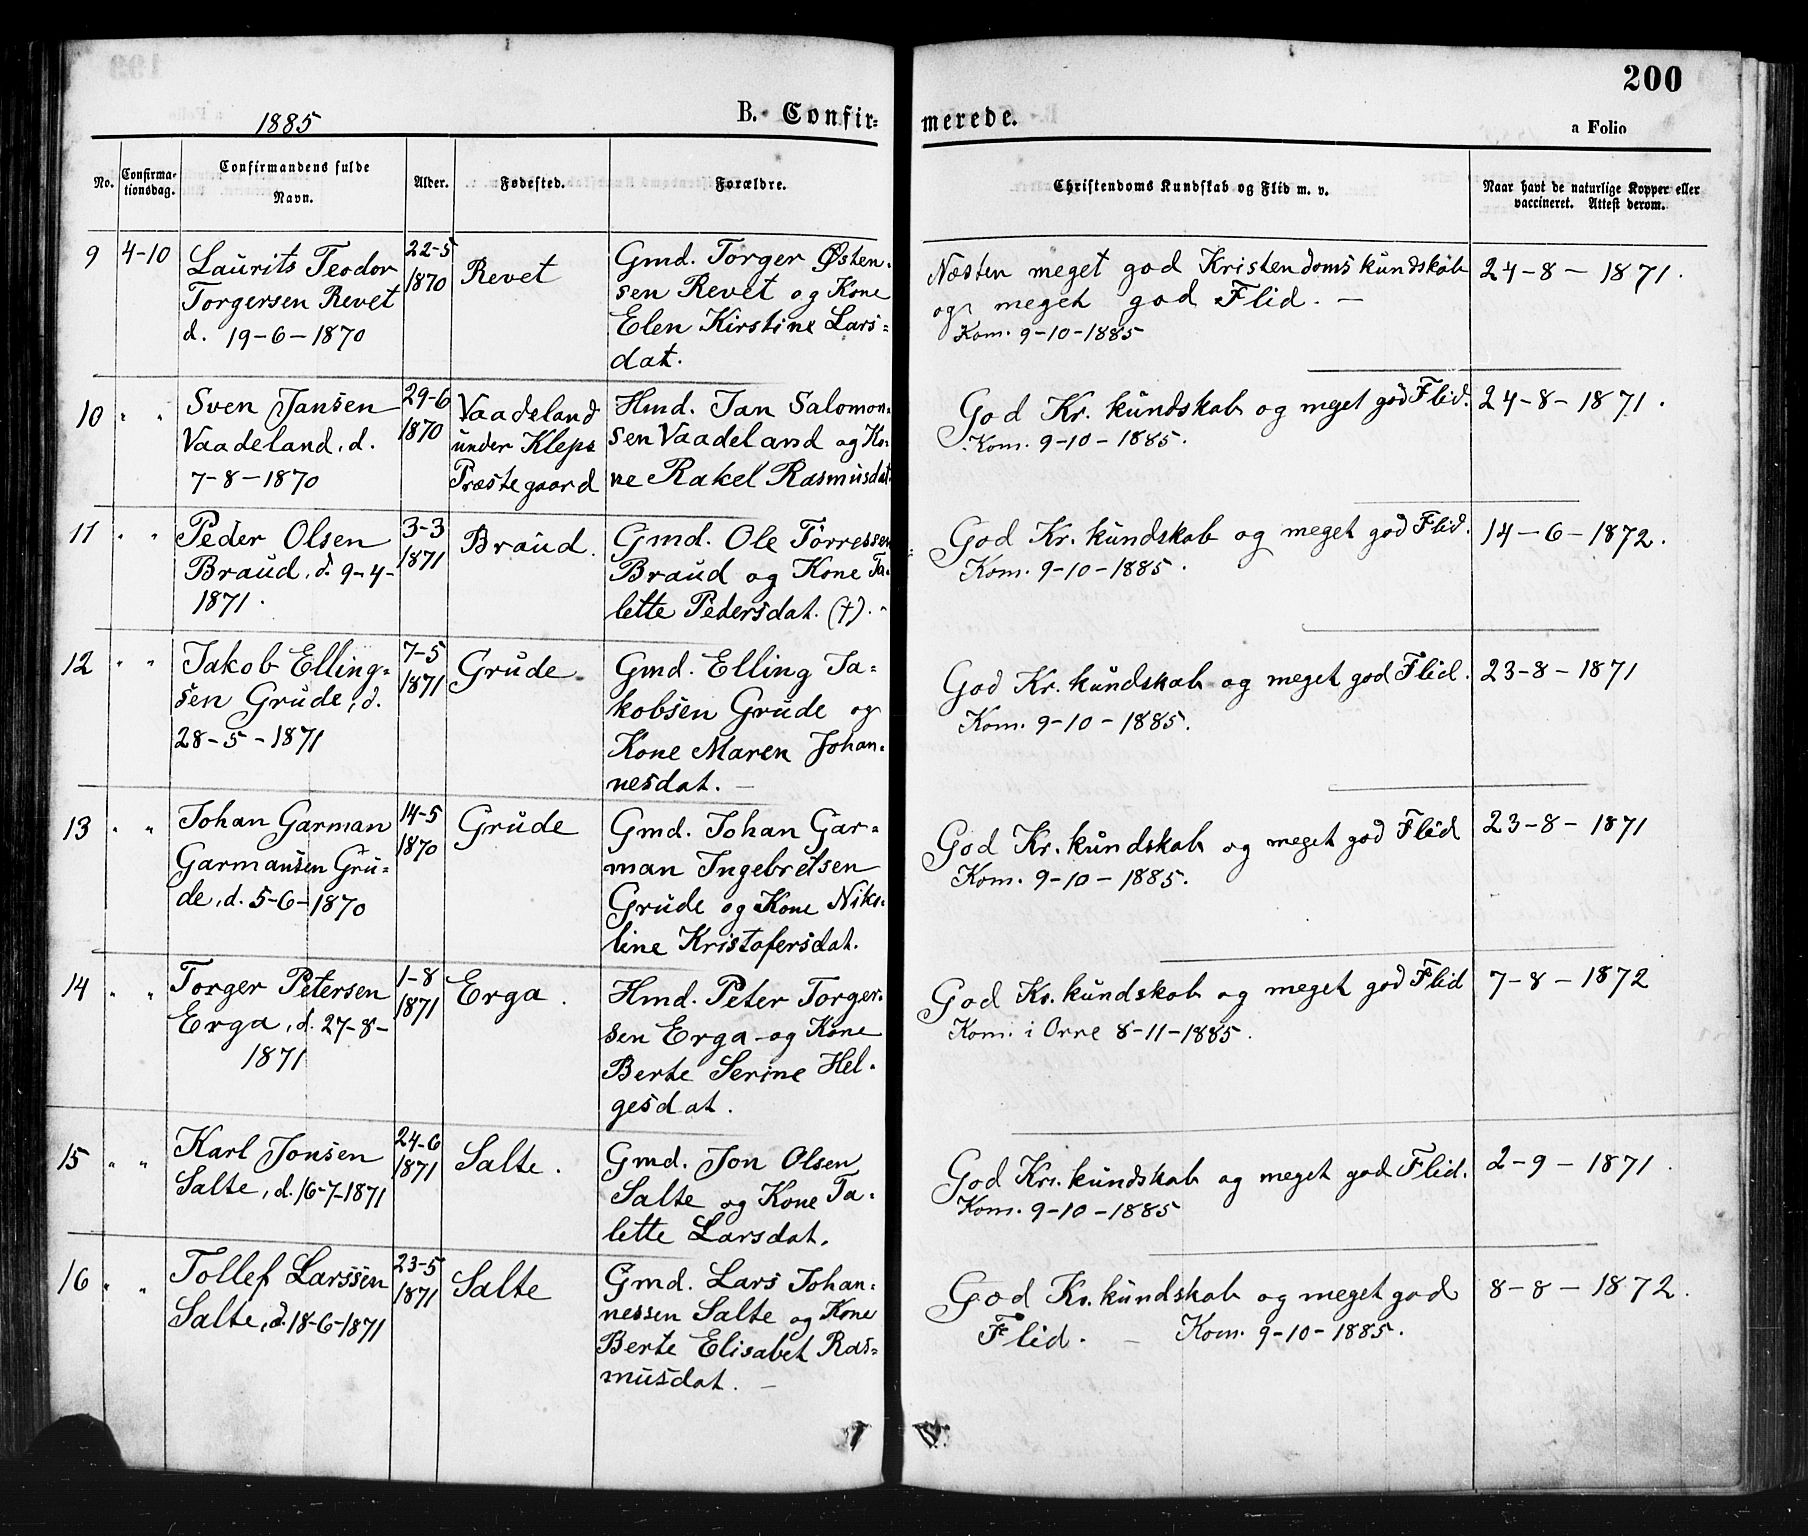 200
1885
B. Confirmerede.
a Folio
No.
Confirmationsdag.
Confirmandens fulde Navn.
Alder.
Fødested.
Forældre.
Christendoms Kundskab og Flid m. v.
Naar havt de naturlige Kopper eller vaccineret. Attest derom.
9
4-10
Laurits Teodor
Torgersen Revet
d. 19-6-1870
22-5
1870
Revet
Gmd. Torger Østen-
sen Revet og Kone
Elen Kirstine Lars=
dat.
Næsten meget god Kristendomskundskab
og meget god Flid. —
Kom. 9-10-1885
24-8-1871.
10
" "
Sven Jansen
Vaadeland, d.
7-8-1870
29-6
1870
Vaadeland
under Kleps
Præstegaard
Hmd. Jan Salomon-
sen Vaadeland og Ko-
ne Rakel Rasmusdat.
God Kr. kundskab og meget god Flid.
Kom. 9-10-1885.
24-8-1871.
11
" "
Peder Olsen
Braud, d. 9-4-
1871.
3-3
1871
Braud.
Gmd. Ole Törressen
Braud og Kone Ta-
lette Pedersdat. (†).
God Kr. kundskab og meget god Flid.
Kom. 9-10-1885.
14-6-1872.
12
" "
Jakob Elling-
sen Grude, d.
28-5-1871
7-5
1871
Grude.
Gmd. Elling Ja-
kobsen Grude og
Kone Maren Johan-
nesdat. —
God Kr. kundskab og meget god Flid.
Kom. 9-10-1885.
23-8-1871
13
" "
Johan Garman
Garmansen Gru-
de, d. 5-6-1870
14-5
1870
Grude
Gmd. Johan Gar=
man Ingebretsen
Grude og Kone Niko-
line Kristofersdat.
God Kr. kundskab og meget god Flid
Kom. 9-10-1885.
23-8-1871
14
" "
Torger Petersen
Erga, d. 27-8-
1871
1-8
1871
Erga.
Hmd. Peter Torger-
sen Erga og Kone
Berte Serine Hel-
gesdat.
God Kr. kundskab og meget god Flid
Kom. i Orre 8-11-1885.
7-8-1872
15
" "
Karl Jonsen
Salte, d. 16-7-1871
24-6
1871
Salte.
Gmd. Jon Olsen
Salte og Kone Ta-
lette Larsdat.
God Kr. kundskab og meget god Flid.
Kom. 9-10-1885
2-9-1871.
16
" "
Tollef Larssen
Salte, d. 18-6-1871
23-5
1871
Salte
Gmd. Lars Johan-
nessen Salte og Kone
Berte Elisabet Ras=
musdat. —
God Kr. kundskab og meget god
Flid. — Kom. 9-10-1885.
8-8-1872.